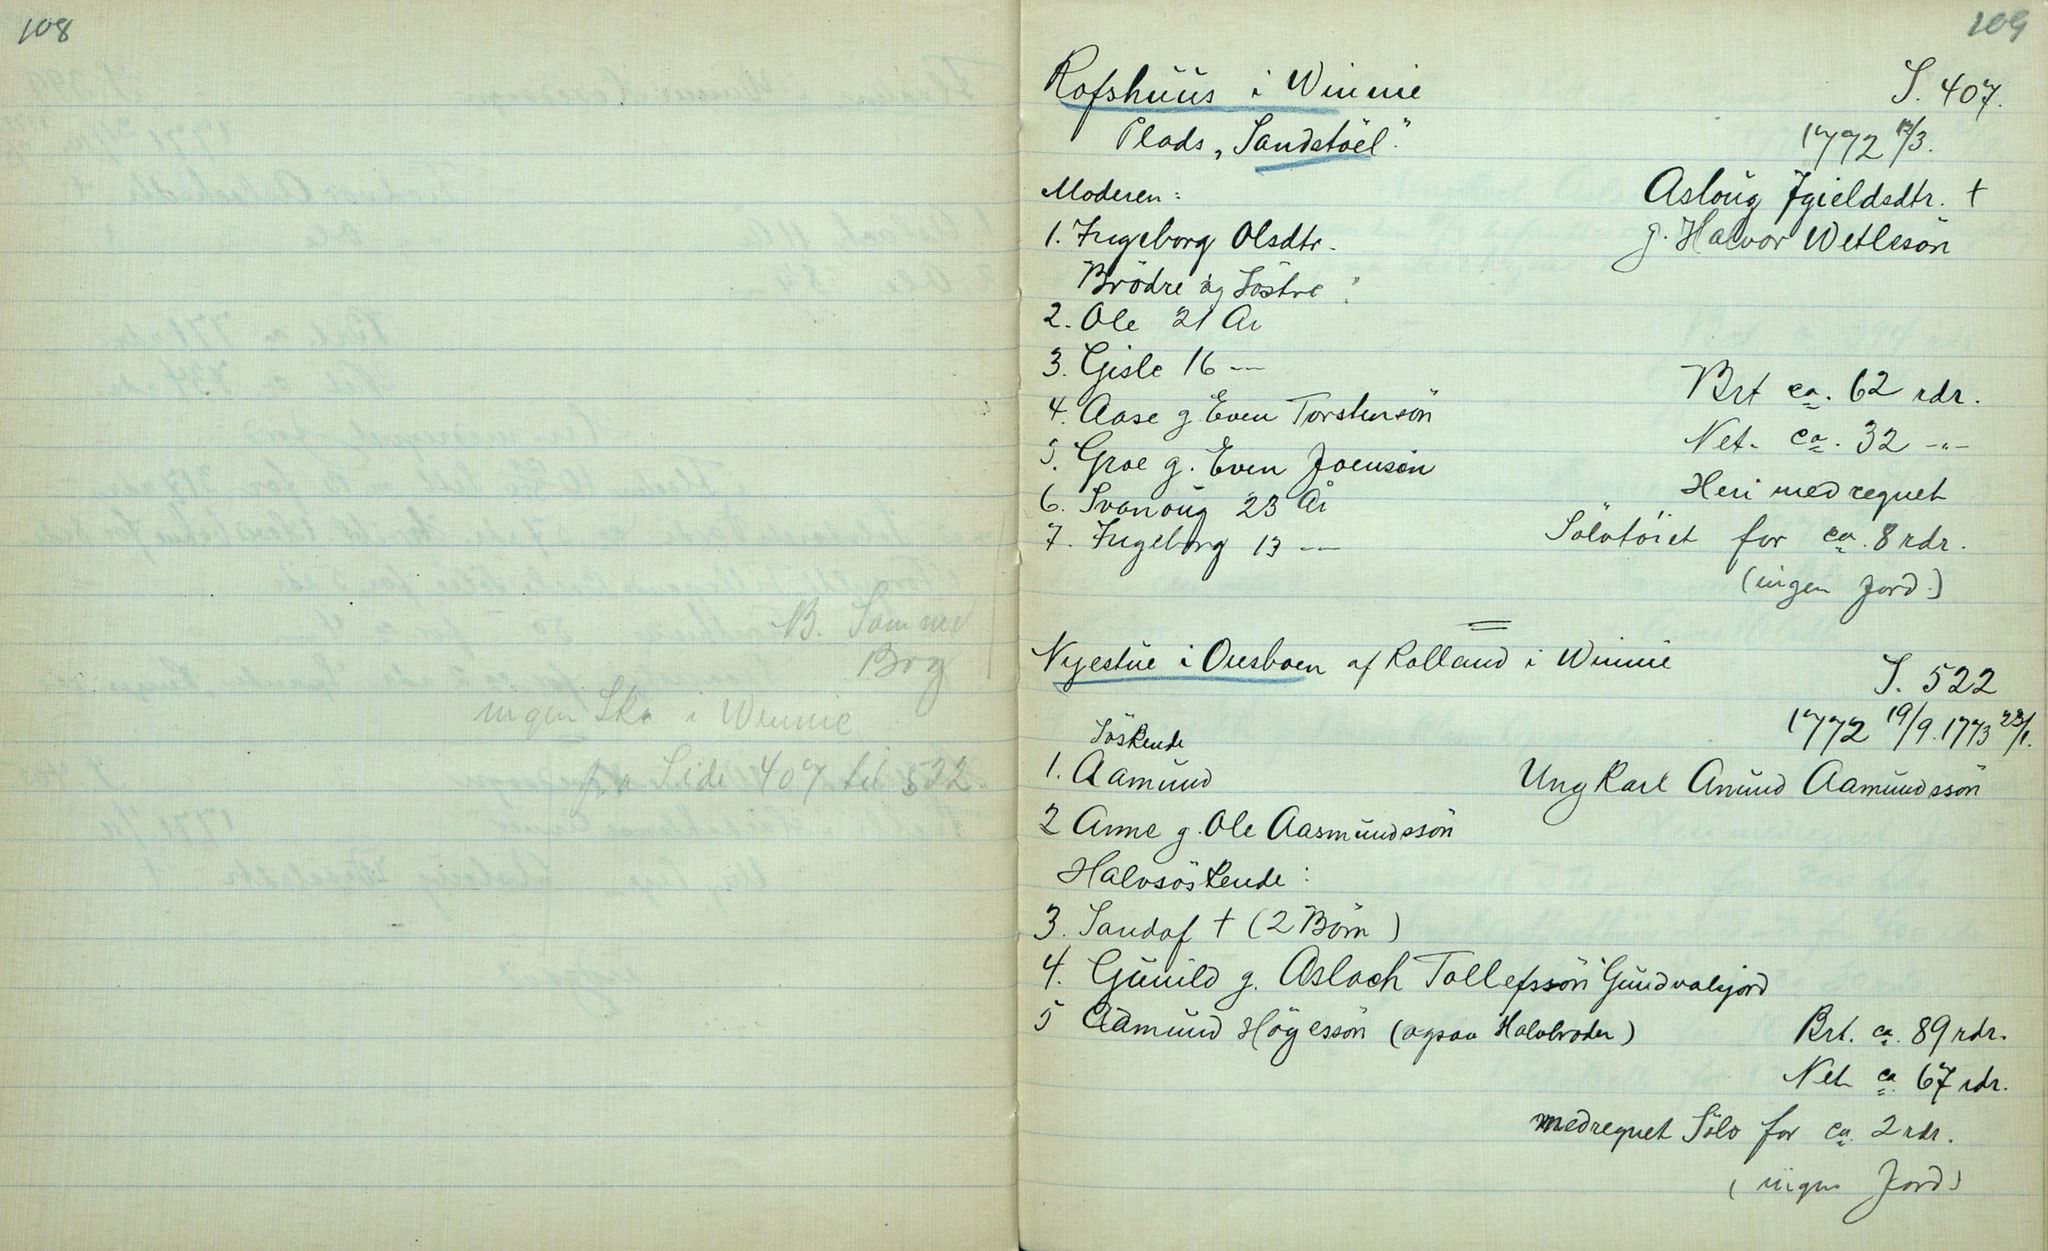 108
B. Samme
Bog
ingen Sk. i Winnie
fra Side 407 til 522.
109
Rofshüüs i Winnie
S. 407.
Plads „Sandstöel".
1772 12/3.
Moderen:
Asloüg Jgieldsdtr. †
1. Ingeborg Olsdtr.
g. Halvor Wetlesön
Brödre og Söstre:
2. Ole 21 År
3. Gisle 16 —
Brt ca. 62 rdr.
4. Aase g. Even Torstensön
Net. ca. 32 -"-
5. Groe g. Even Joensön
Heri medregnet
6. Svanoüg 23 År
Sölvtöiet for ca. 8 rdr.
7. Ingeborg 13 —
(ingen Jord.)
Nyestüe i Ousboen af Rolland i Winnie
S. 522
1772 19/9. 1773 23/1.
Söskende
1. Aamünd
Ungkarl Amünd Aamündssön
2 Anne g. Ole Aasmündssön
Halvsöskende:
3. Sandof † (2 Börn)
4. Günild g. Aslach Tollefssön Gündvalsjord
5 Aamünd Högessön (ogsaa Halvbroder)
Brt. ca. 89 rdr.
Net. ca. 67 rdr.
medregnet Sölv for ca. 2 rdr.
(ingen Jord)